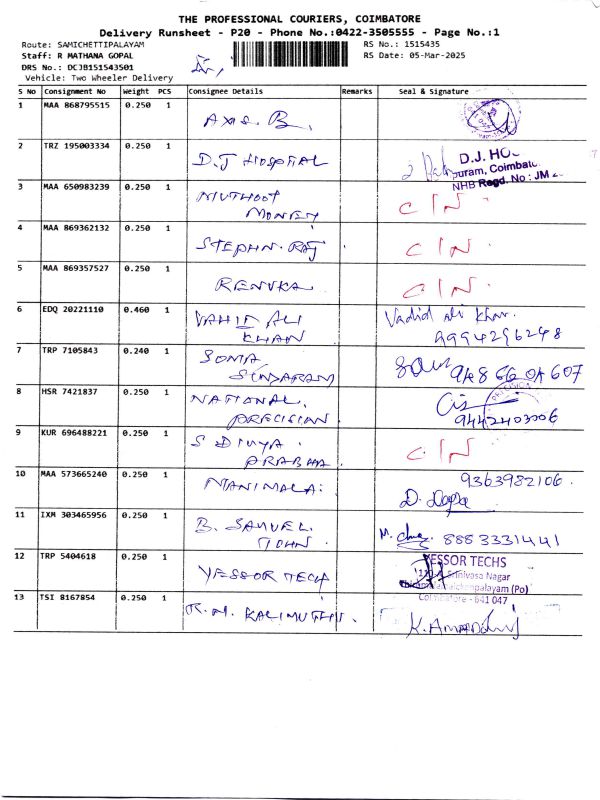 THE PROFESSIONAL COURIERS, COIMBATORE
Delivery Runsheet - P20 - Phone No.:0422-3505555 - Page No.:1
Route: SAMICHETTIPALAYAM
RS No.: 1515435
Staff: R MATHANA GOPAL
RS Date: 05-Mar-2025
DRS No.: DCJB151543501
Vehicle: Two Wheeler Delivery
S No Consignment No Weight PCS Consignee Details Remarks Seal & Signature
1 MAA 868795515 0.250 1 AXIS B.
2 TRZ 195003334 0.250 1 D.J HOSPITAL
D.J. HO
puram, Coimbat
NHB Regd. No : JM
3 MAA 650983239 0.250 1 MUTHOOT
MONEY C/N
4 MAA 869362132 0.250 1 STEPHN. RAJ C/N
5 MAA 869357527 0.250 1 RENUKA C/N
6 EDQ 20221110 0.460 1 VAHID ALI
KHAN Vadid ali khan.
9994296248
7 TRP 7105843 0.240 1 SOMA
SUNDARAM
8 HSR 7421837 0.250 1 NATIONAL.
PRECISION 9442403006
9 KUR 696488221 0.250 1 S DIVYA
PRABHA C/N
10 MAA 573665240 0.250 1 MANIMALA. 9363982106
11 IXM 303465956 0.250 1 B. SAMUEL
JOHN 8883331441
12 TRP 5404618 0.250 1 YESSOR TECH
YESSOR TECHS
Srinivasa Nagar
palayam (Po)
Coimbatore - 641 047
13 TSI 8167854 0.250 1 R.M. KALIMUTHU.